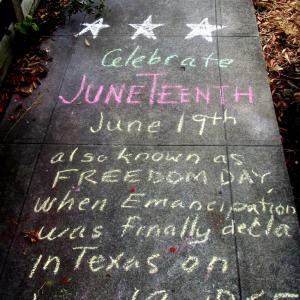 Celebrate
JUNETEENTH
June 19th
also known as
FREEDOM DAY
when Emancipation
was finally decla
in Texas on